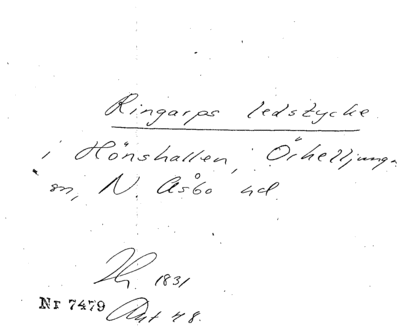 Ringarps ledstycke
i Hönshallen, Örkelljunga
sn, N. Åsbo hd.
1831
Nr 7479 Akt 48.